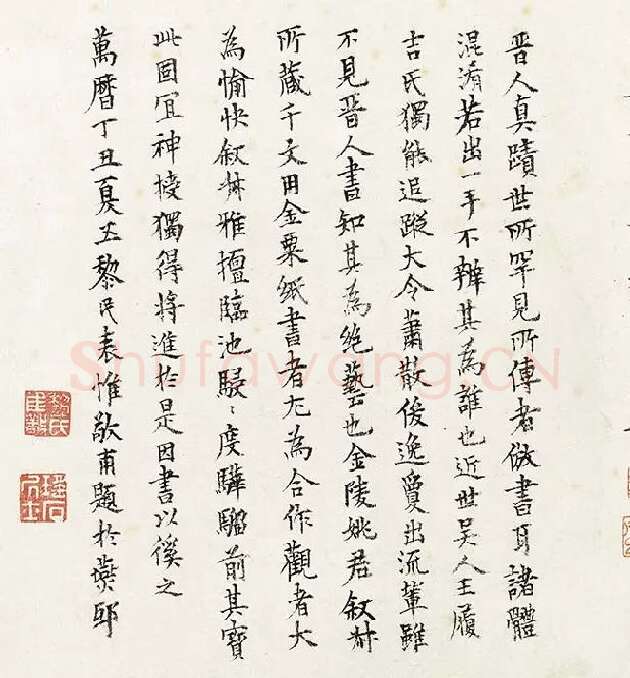 晋人真蹟世所罕見所傳者倣書耳諸體
混淆若出一手不辨其為誰也近世吳人王履
吉氏獨能追蹤大令蕭散俊逸夐出流輩雖
不見晋人書知其為絕藝也金陵姚君叙
所藏千文用金粟紙書者尤為合作觀者大
為愉快叙雅擅臨池駸〻度驊騮前其寶
此固宜神授獨得將進於是因書以俟之
萬曆丁丑夏五黎民表惟敬甫題於燕邸
Shufawang.CN
黎氏